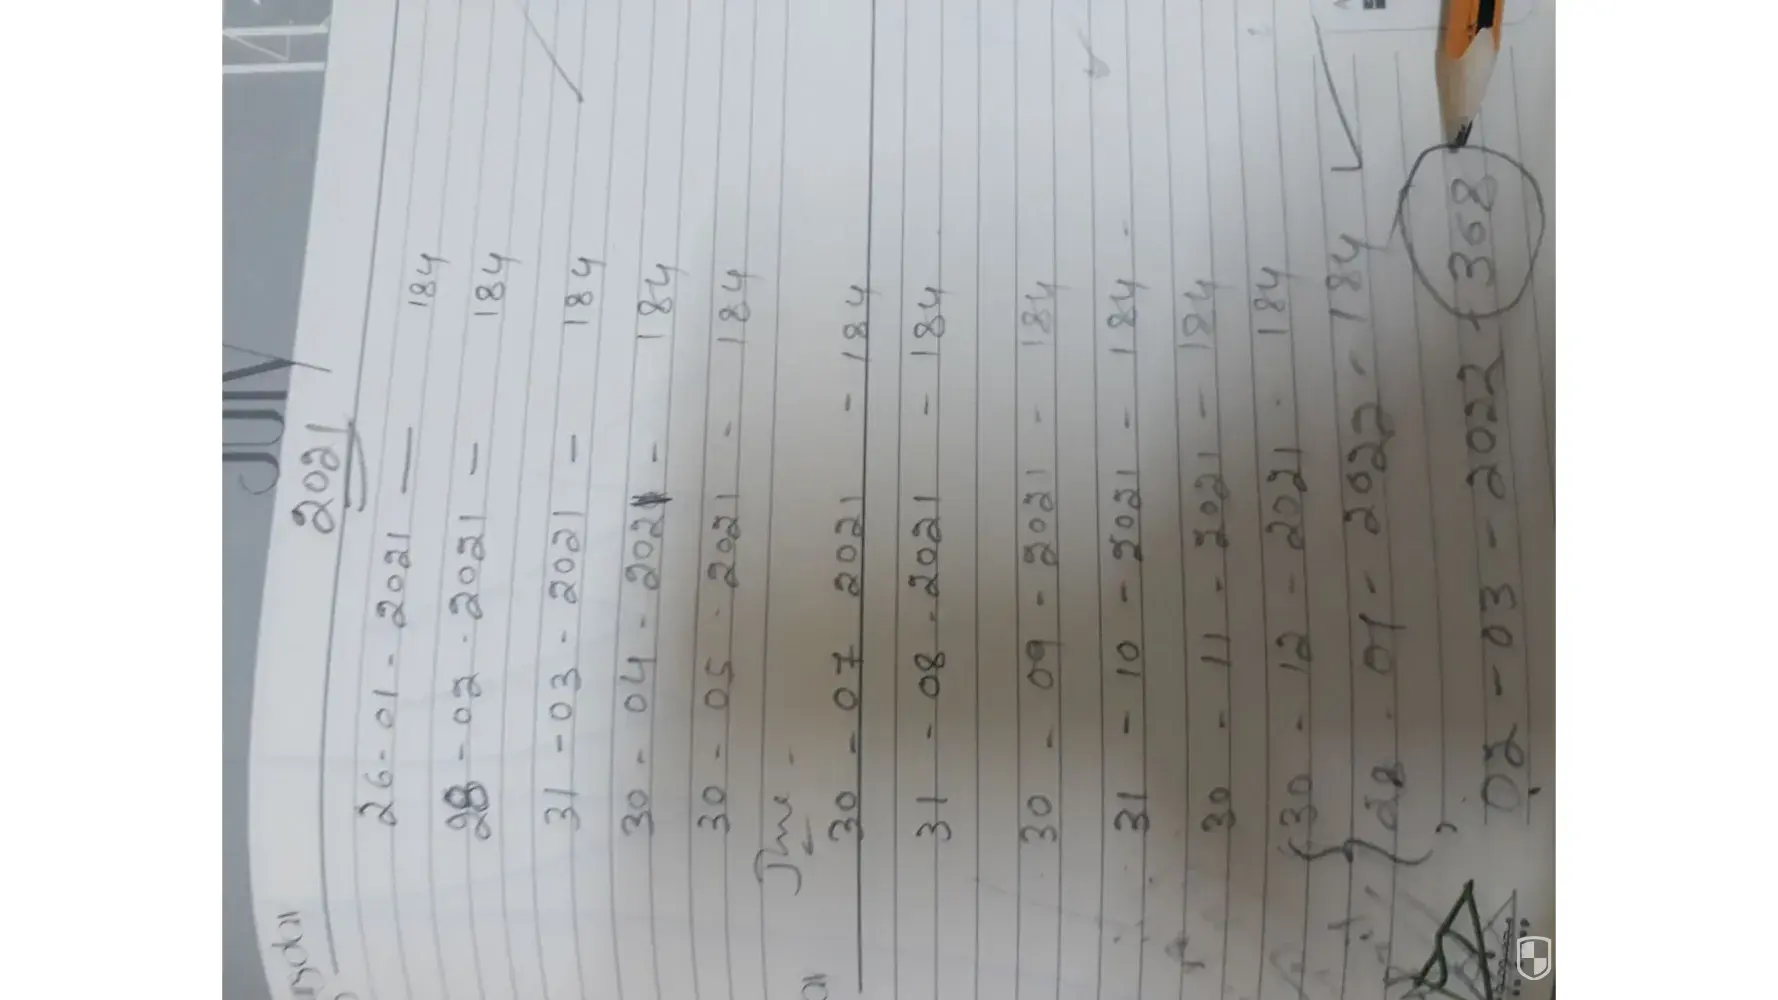 2021
26-01-2021 — 184
28-02-2021 - 184
31-03-2021 - 184
30-04-2021 - 184
30-05-2021 - 184
June -
30-07 2021 - 184
31-08-2021 - 184
30-09-2021 - 184
31-10-2021 - 184 -
30-11-2021 - 184
30-12-2021 - 184
28-01-2022 - 184
02-03-2022 - 368